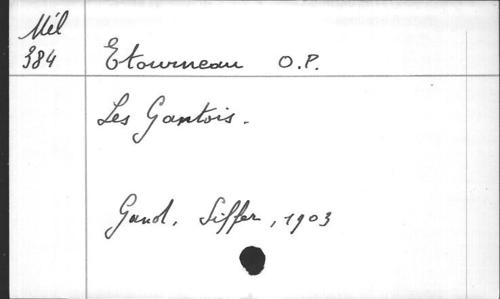 Mél
384
Etourneau O.P.
Les Gantois.
Gand, Siffer, 1903